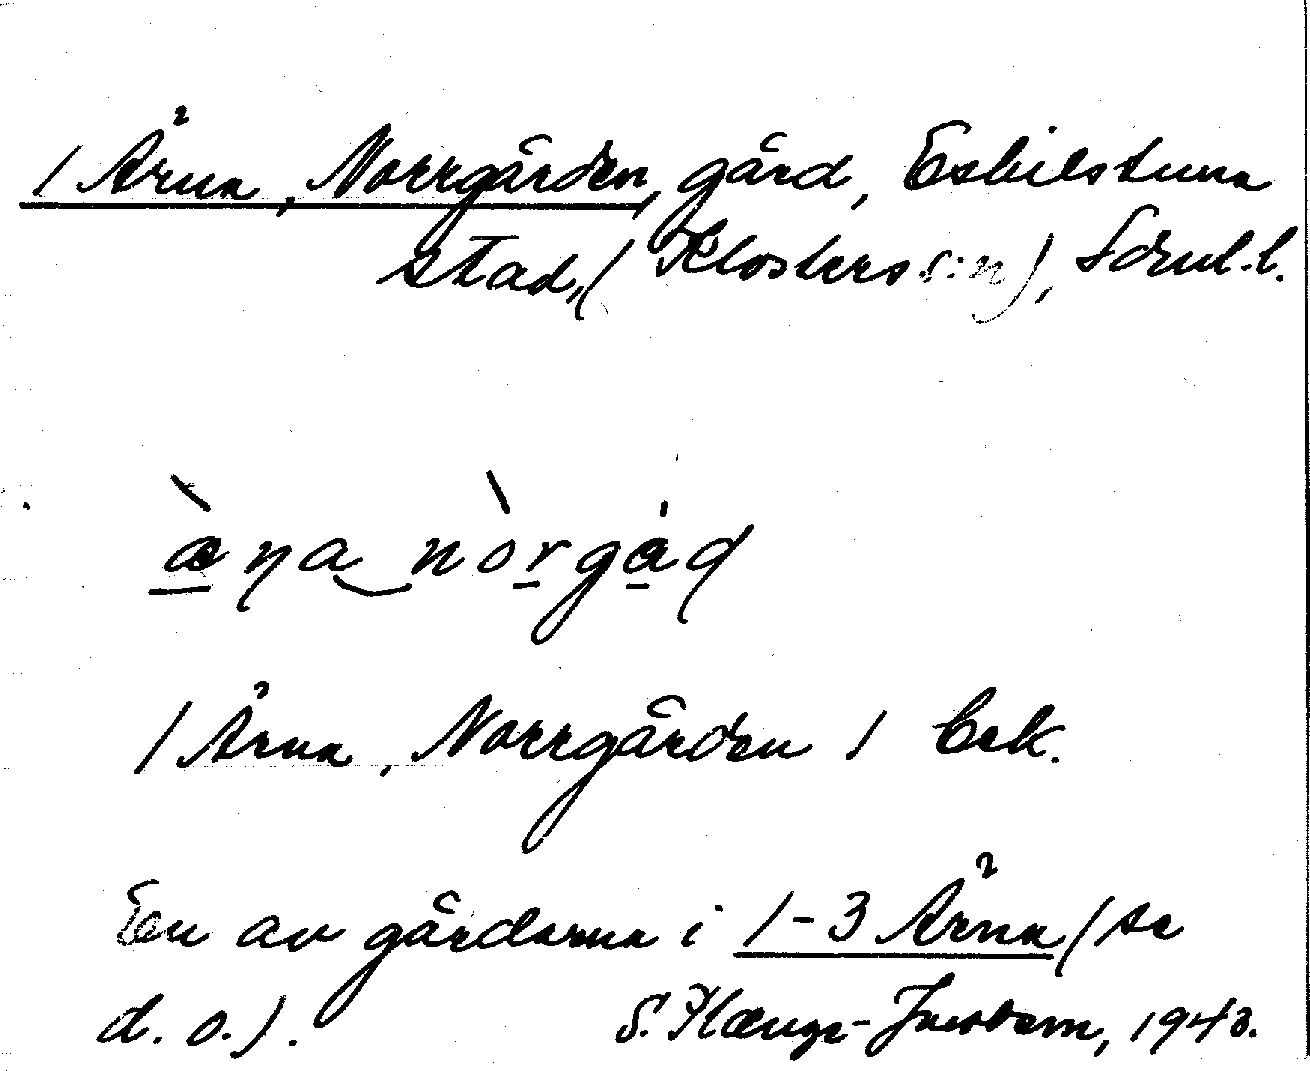 1 Ärna, Norrgården, gård, Eskilstuna
stad, (Klosters s:n), Söml.l.
æ̀ɳa nòrgàɖ
1 Ärna, Norrgården 1 bek.
En av gårdarna i 1-3 Ärna (se
d. o.).
S. 1943.